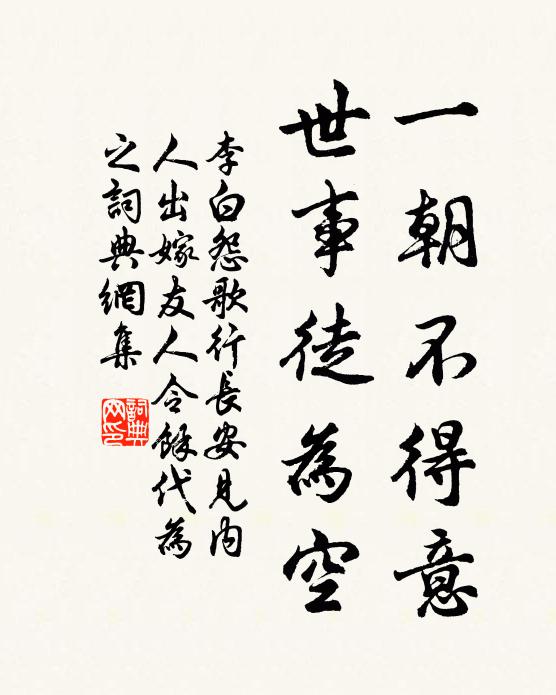 一朝不得意
世事徒為空
李白怨歌行長安見內
人出嫁友人令餘代為
之詞典網集
詞典
网印